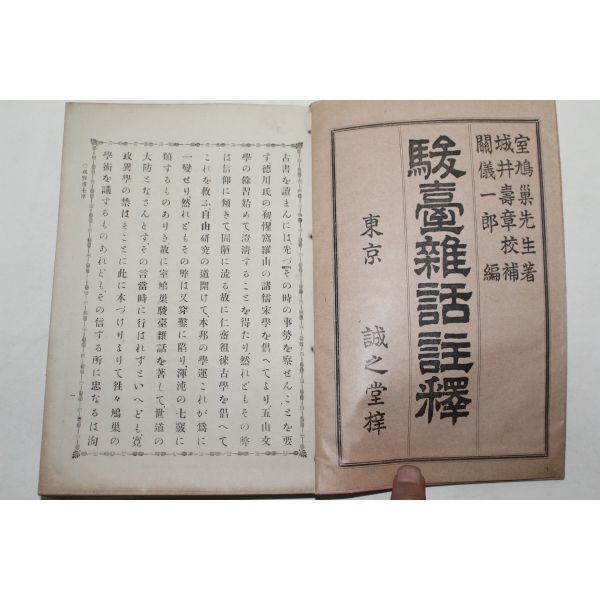 室鳩巢先生著
城井壽章校補
關儀一郎編
駿臺雜話註釋
東京　誠之堂梓
古書を讀まんには先づその時の事勢を察せんことを要
す、德川氏の初惺窩羅山の諸儒宋學を倡へてより、五山文
學の餘習始めて澄淸することを得たり、然れどもその弊
は信仰に傾きて固陋に流る故に仁齋徂徠古學を倡へて
これを救ふ、自由研究の道開けて、本邦の學運これが爲に
一變せり、然れどもその弊は又穿鑿に陷り渾沌の七竅に
類するものあり、き故に室鳩巢駿臺雜話を著して世道の
大防となさんとす、その言當時に行はれずといへども、寬
政異學の禁はまことに此に本づけり、よりて往々鳩巢の
學術を議するものあれども、その信ずる所に忠なるは洵
一